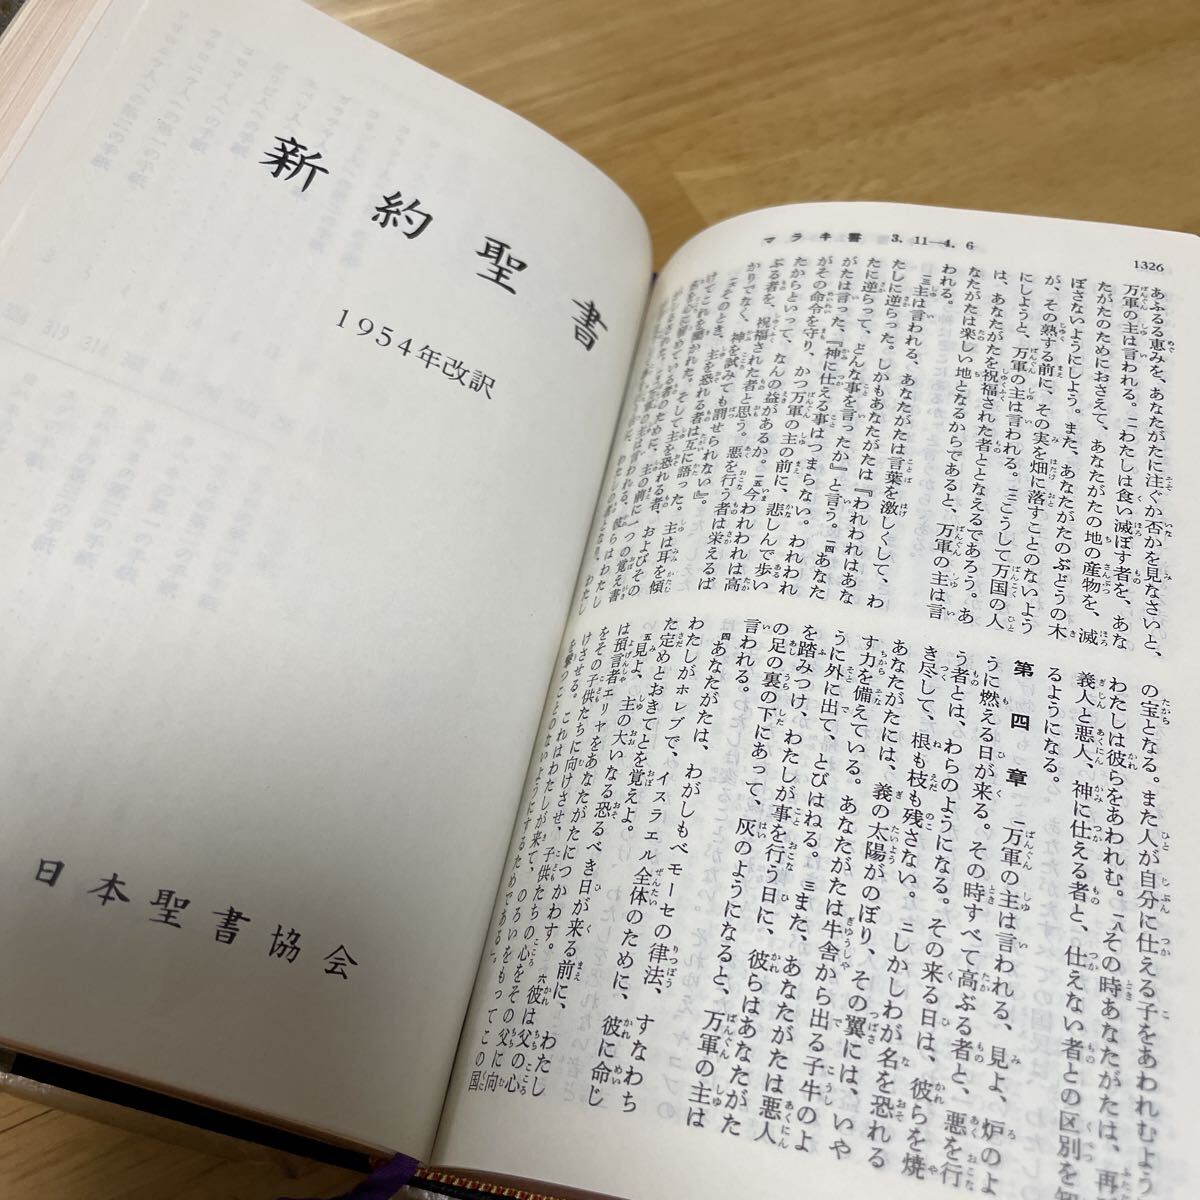 1326
マラキ書 3. 11—4. 6
あふるる恵みを、あなたがたに注ぐか否かを見なさいと、
万軍の主は言われる。一一わたしは食い滅ぼす者を、あな
たがたのためにおさえて、あなたがたの地の産物を、滅
ぼさないようにしよう。また、あなたがたのぶどうの木
が、その熟する前に、その実を畑に落すことのないよう
にしようと、万軍の主は言われる。一二こうして万国の人
は、あなたがたを祝福された者ととなえるであろう。あ
なたがたは楽しい地となるからであると、万軍の主は言
われる。
一三主は言われる、あなたがたは言葉を激しくして、わ
たしに逆らった。しかもあなたがたは『われわれはあな
たに逆らって、どんな事を言ったか』と言う。一四あなた
がたは言った、『神に仕える事はつまらない。われわれ
がその命令を守り、かつ万軍の主の前に、悲しんで歩い
たからといって、なんの益があるか。一五今われわれは高
ぶる者を、祝福された者と思う。悪を行う者は栄えるば
かりでなく、神を試みても罰せられない』。
一六そのとき、主を恐れる者は互に語った。主は耳を傾
けてこれを聞かれた。そして主を恐れる者、およびその
の宝となる。また人が自分に仕える子をあわれむように
わたしは彼らをあわれむ。一八その時あなたがたは、再
義人と悪人、神に仕える者と、仕えない者との区別を
るようになる。
第四章
一万軍の主は言われる、見よ、炉のよ
うに燃える日が来る。その時すべて高ぶる者と、悪を行
う者とは、わらのようになる。その来る日は、彼らを焼
き尽して、根も枝も残さない。二しかしわが名を恐れる
あなたがたには、義の太陽がのぼり、その翼には、いや
す力を備えている。あなたがたは牛舎から出る子牛のよ
うに外に出て、とびはねる。三また、あなたがたは悪人
を踏みつけ、わたしが事を行う日に、彼らはあなたがた
の足の裏の下にあって、灰のようになると、万軍の主は
言われる。
四あなたがたは、わがしもべモーセの律法、すなわち
わたしがホレブで、イスラエル全体のために、彼に命じ
た定めとおきてとを覚えよ。
五見よ、主の大いなる恐るべき日が来る前に、わたし
は預言者エリヤをあなたがたにつかわす。六彼は父の心
をその子供たちに向けさせ、子供たちの心をその父に向
けさせる。これはわたしが来て、のろいをもってこの国
を撃つことのないようにするためである」。
新約聖書
1954年改訳
日本聖書協会